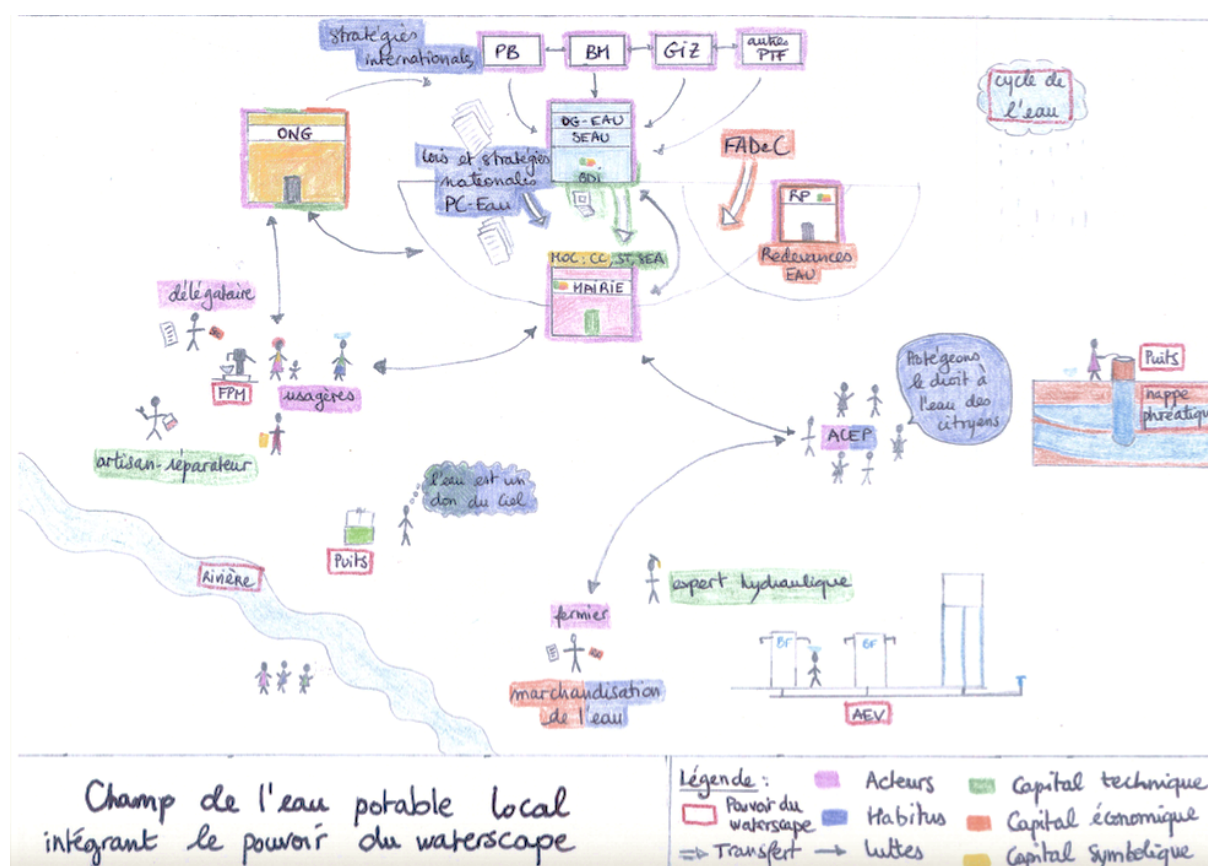 stratégies
internationales
PB
BM
GiZ
autres
PTF
cycle de
l'eau
ONG
DG-EAU
SEAU
BDI
lois et stratégies
nationales
PC-Eau
FADeC
RP
Redevances
EAU
MOC: CC, ST, SEA
MAIRIE
délégataire
FPM
usagères
artisan-réparateur
Protégeons
le droit à
l'eau des
citoyens
ACEP
Puits
nappe
phréatique
l'eau est un
don du Ciel
Puits
Rivière
expert hydraulique
fermier
marchandisation
de l'eau
BF
BF
AEV
Champ de l'eau potable local
intégrant le pouvoir du waterscape
Légende :
Pouvoir du
waterscape
Transfert
Acteurs
Habitus
luttes
Capital technique
Capital économique
Capital symbolique